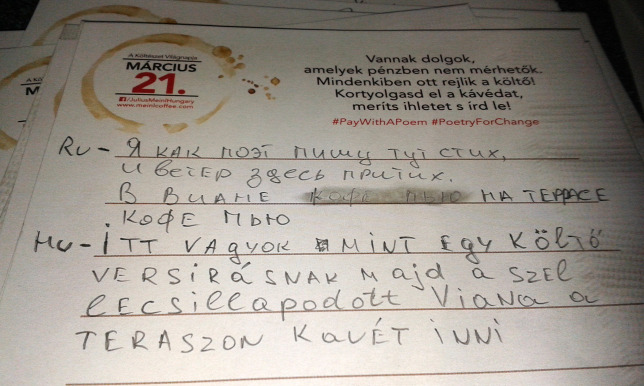 A Költészet Világnapja
MÁRCIUS
21.
/JuliusMeinlHungary
www.meinlcoffee.com
Vannak dolgok,
amelyek pénzben nem mérhetők.
Mindenkiben ott rejlik a költő!
Kortyolgasd el a kávédat,
meríts ihletet s írd le!
#PayWithAPoem #PoetryForChange
RU - Я КАК ПОЭТ ПИШУ ТУТ СТИХ,
И ВЕТЕР ЗДЕСЬ ПРИТИХ.
В ВИАНЕ КОФЕ ПЬЮ НА ТЕРРАСЕ
КОФЕ ПЬЮ
HU - ITT VAGYOK MINT EGY KÖLTŐ
VERSIRÁSNAK MAJD A SZEL
LECSILLAPODOTT VIANA A
TERASZON KAVÉT INNI